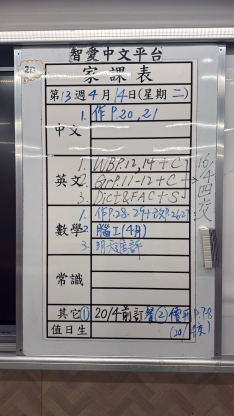 2B
智愛中文平台
家課表
第13週4月14日(星期二)
中文
1. 作P.20,21
英文
1. WBP.12,14+C
2. GrP.11-12+C
3. Dict&FAC+S
16/4四交
數學
1. 作P.28-29+改P.26,27
2. 腦工(4月)
3. 明天進評
常識
其它 ① 20/4前訂 P.7-8
值日生